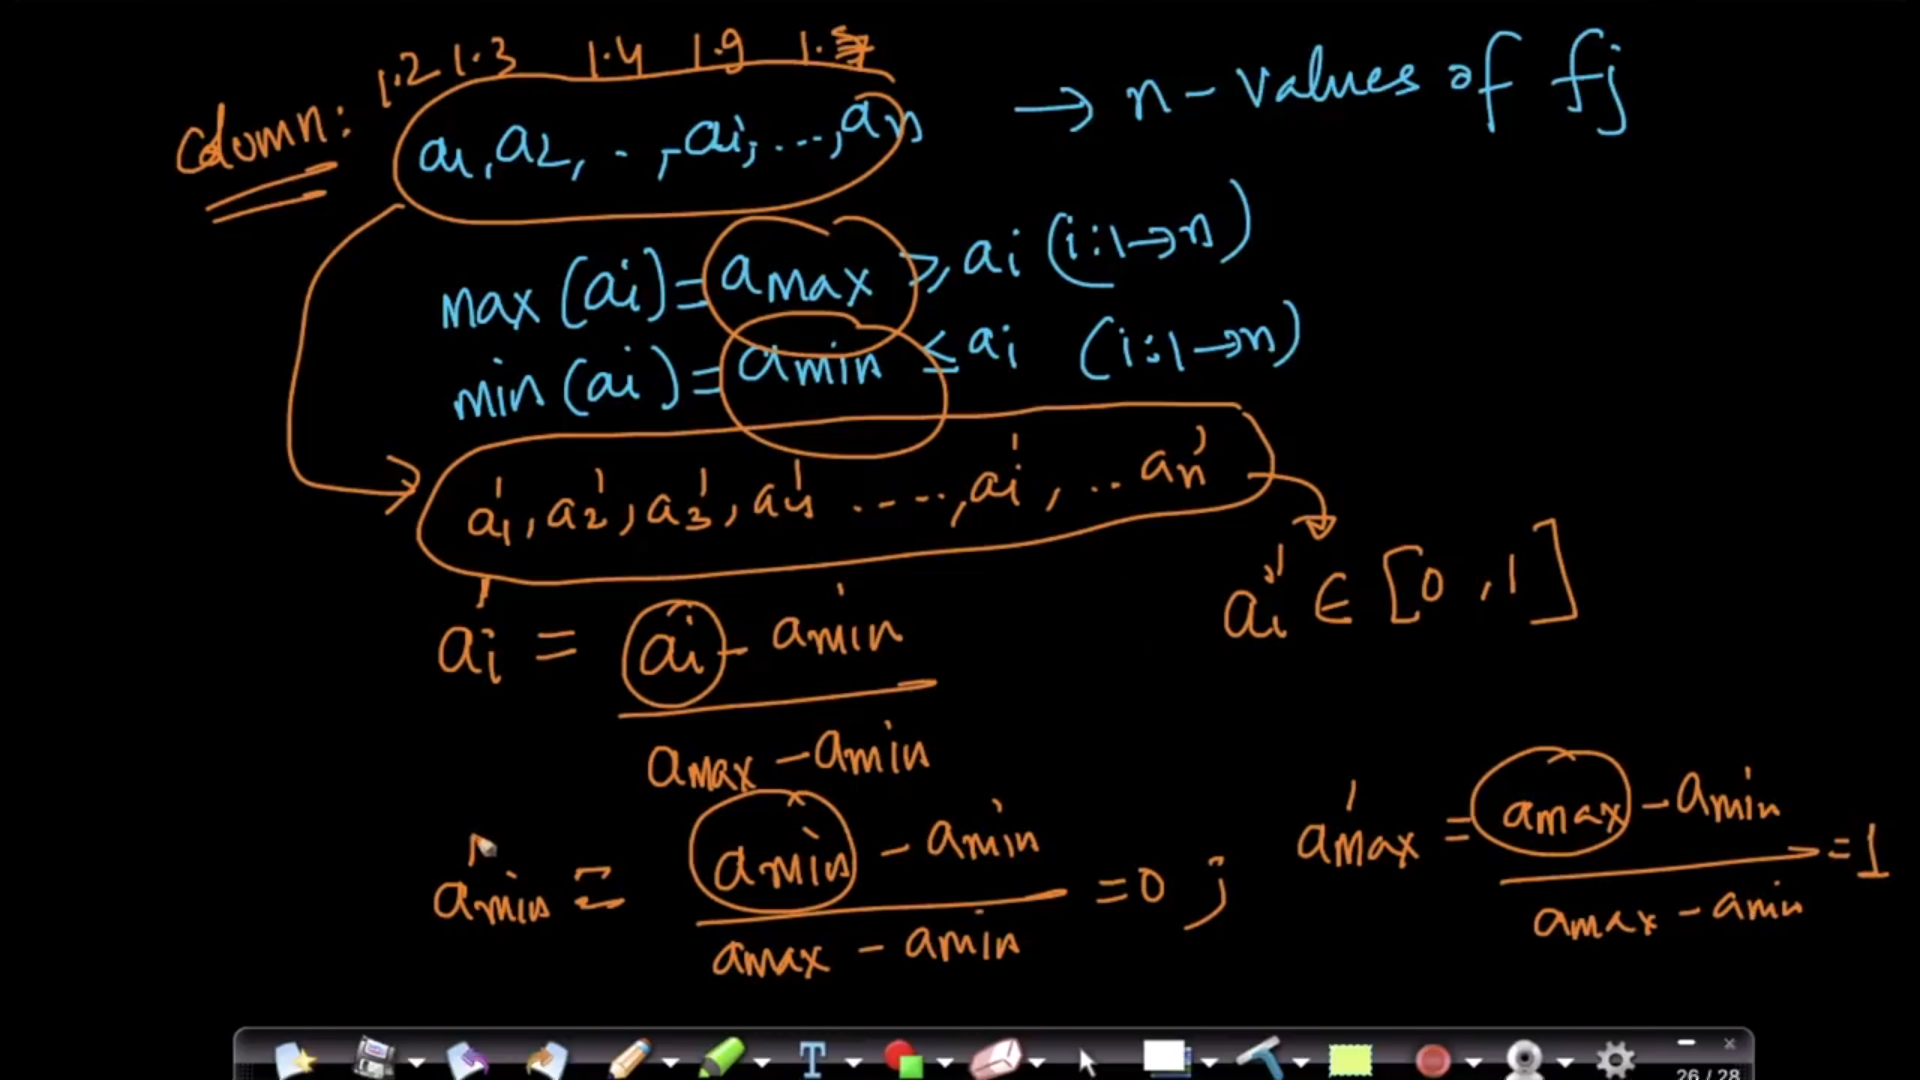 1.2 1.3 1.4 1.9 1.5
Column: a1, a2, . , ai, ..., an → n-values of fj
max (ai) = amax ≥ ai (i:1→n)
min (ai) = amin ≤ ai (i:1→n)
a1', a2', a3', a4' ....., ai', .. an'
ai' ∈ [0, 1]
ai' = ai - amin
amax - amin
amin' = amin - amin = 0 ; amax' = amax - amin = 1
amax - amin amax - amin
T
26 / 28